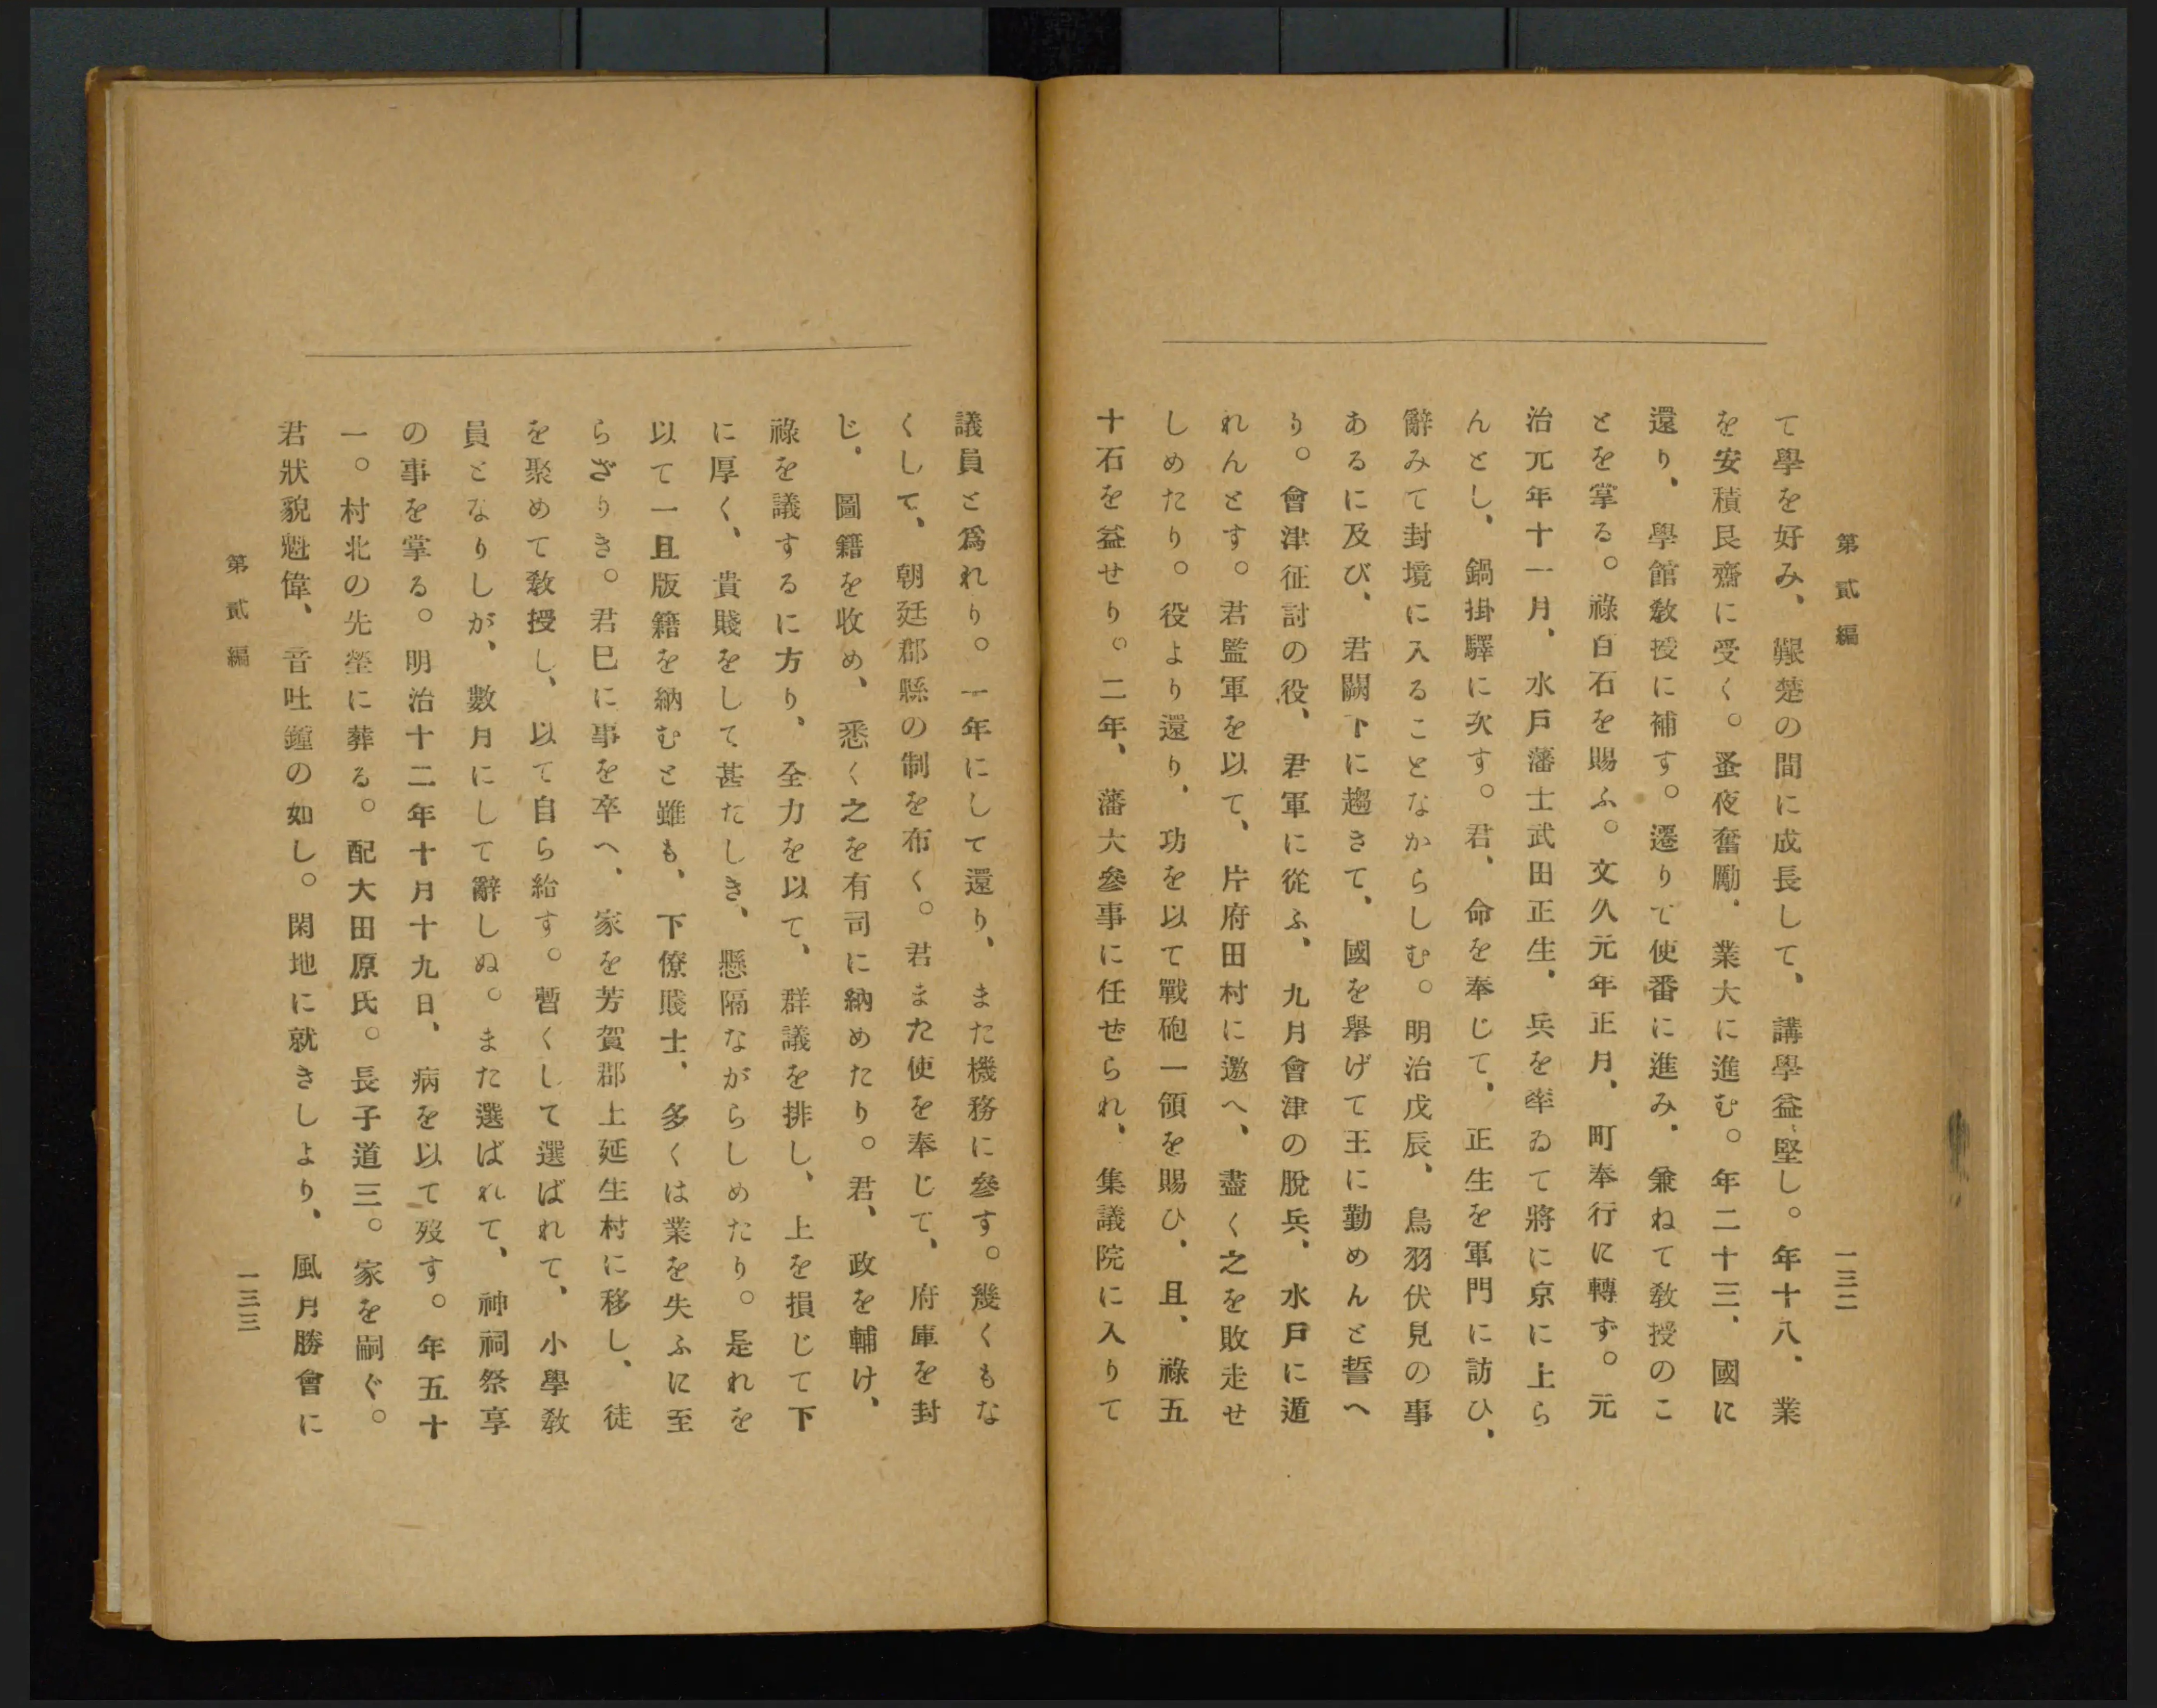 第貳編
一三二
て學を好み、艱楚の間に成長して、講學益〻堅し。年十八、業
を安積艮齋に受く。蚤夜奮勵、業大に進む。年二十三、國に
還り、學館敎授に補す。遷りて使番に進み、兼ねて敎授のこ
とを掌る。祿百石を賜ふ。文久元年正月、町奉行に轉ず。元
治元年十一月、水戶藩士武田正生、兵を率ゐて將に京に上ら
んとし、鍋掛驛に次す。君、命を奉じて、正生を軍門に訪ひ、
辭みて封境に入ることなからしむ。明治戊辰、鳥羽伏見の事
あるに及び、君闕下に趨きて、國を擧げて王に勤めんと誓へ
り。會津征討の役、君軍に從ふ、九月會津の脫兵、水戶に遁
れんとす。君監軍を以て、片府田村に邀へ、盡く之を敗走せ
しめたり。役より還り、功を以て戰砲一領を賜ひ、且、祿五
十石を益せり。二年、藩大參事に任せられ、集議院に入りて
議員と爲れり。一年にして還り、また機務に參す。幾くもな
くして、朝廷郡縣の制を布く。君また使を奉じて、府庫を封
じ、圖籍を收め、悉く之を有司に納めたり。君、政を輔け、
祿を議するに方り、全力を以て、群議を排し、上を損じて下
に厚く、貴賤をして甚たしき、懸隔ながらしめたり。是れを
以て一且版籍を納むと雖も、下僚賤士、多くは業を失ふに至
らざりき。君巳に事を卒へ、家を芳賀郡上延生村に移し、徒
を聚めて敎授し、以て自ら給す。暫くして選ばれて、小學敎
員となりしが、數月にして辭しぬ。また選ばれて、神祠祭享
の事を掌る。明治十二年十月十九日、病を以て歿す。年五十
一。村北の先塋に葬る。配大田原氏。長子道三。家を嗣ぐ。
君狀貌魁偉、音吐鐘の如し。閑地に就きしより、風月勝會に
第貳編
一三三